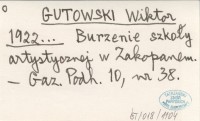 GUTOWSKI Wiktor
1922... Burzenie szkoły
artystycznej w Zakopanem.
— Gaz. Podh. 10, nr 38.